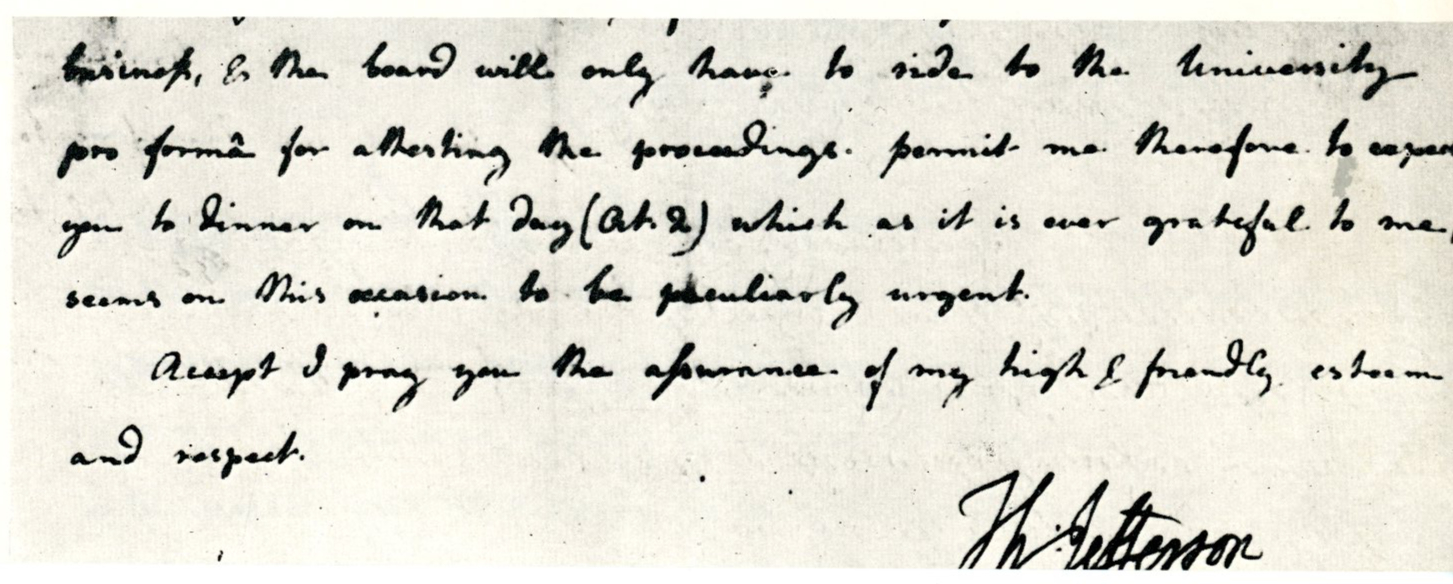 business, & the board will only have to ride to the University
pro formâ for attesting the proceedings. permit me therefore to expect
you to dinner on that day (Oct. 2) which as it is ever grateful to me,
seems on this occasion to be peculiarly urgent.
Accept I pray you the assurance of my high & friendly esteem
and respect.
Th: Jefferson